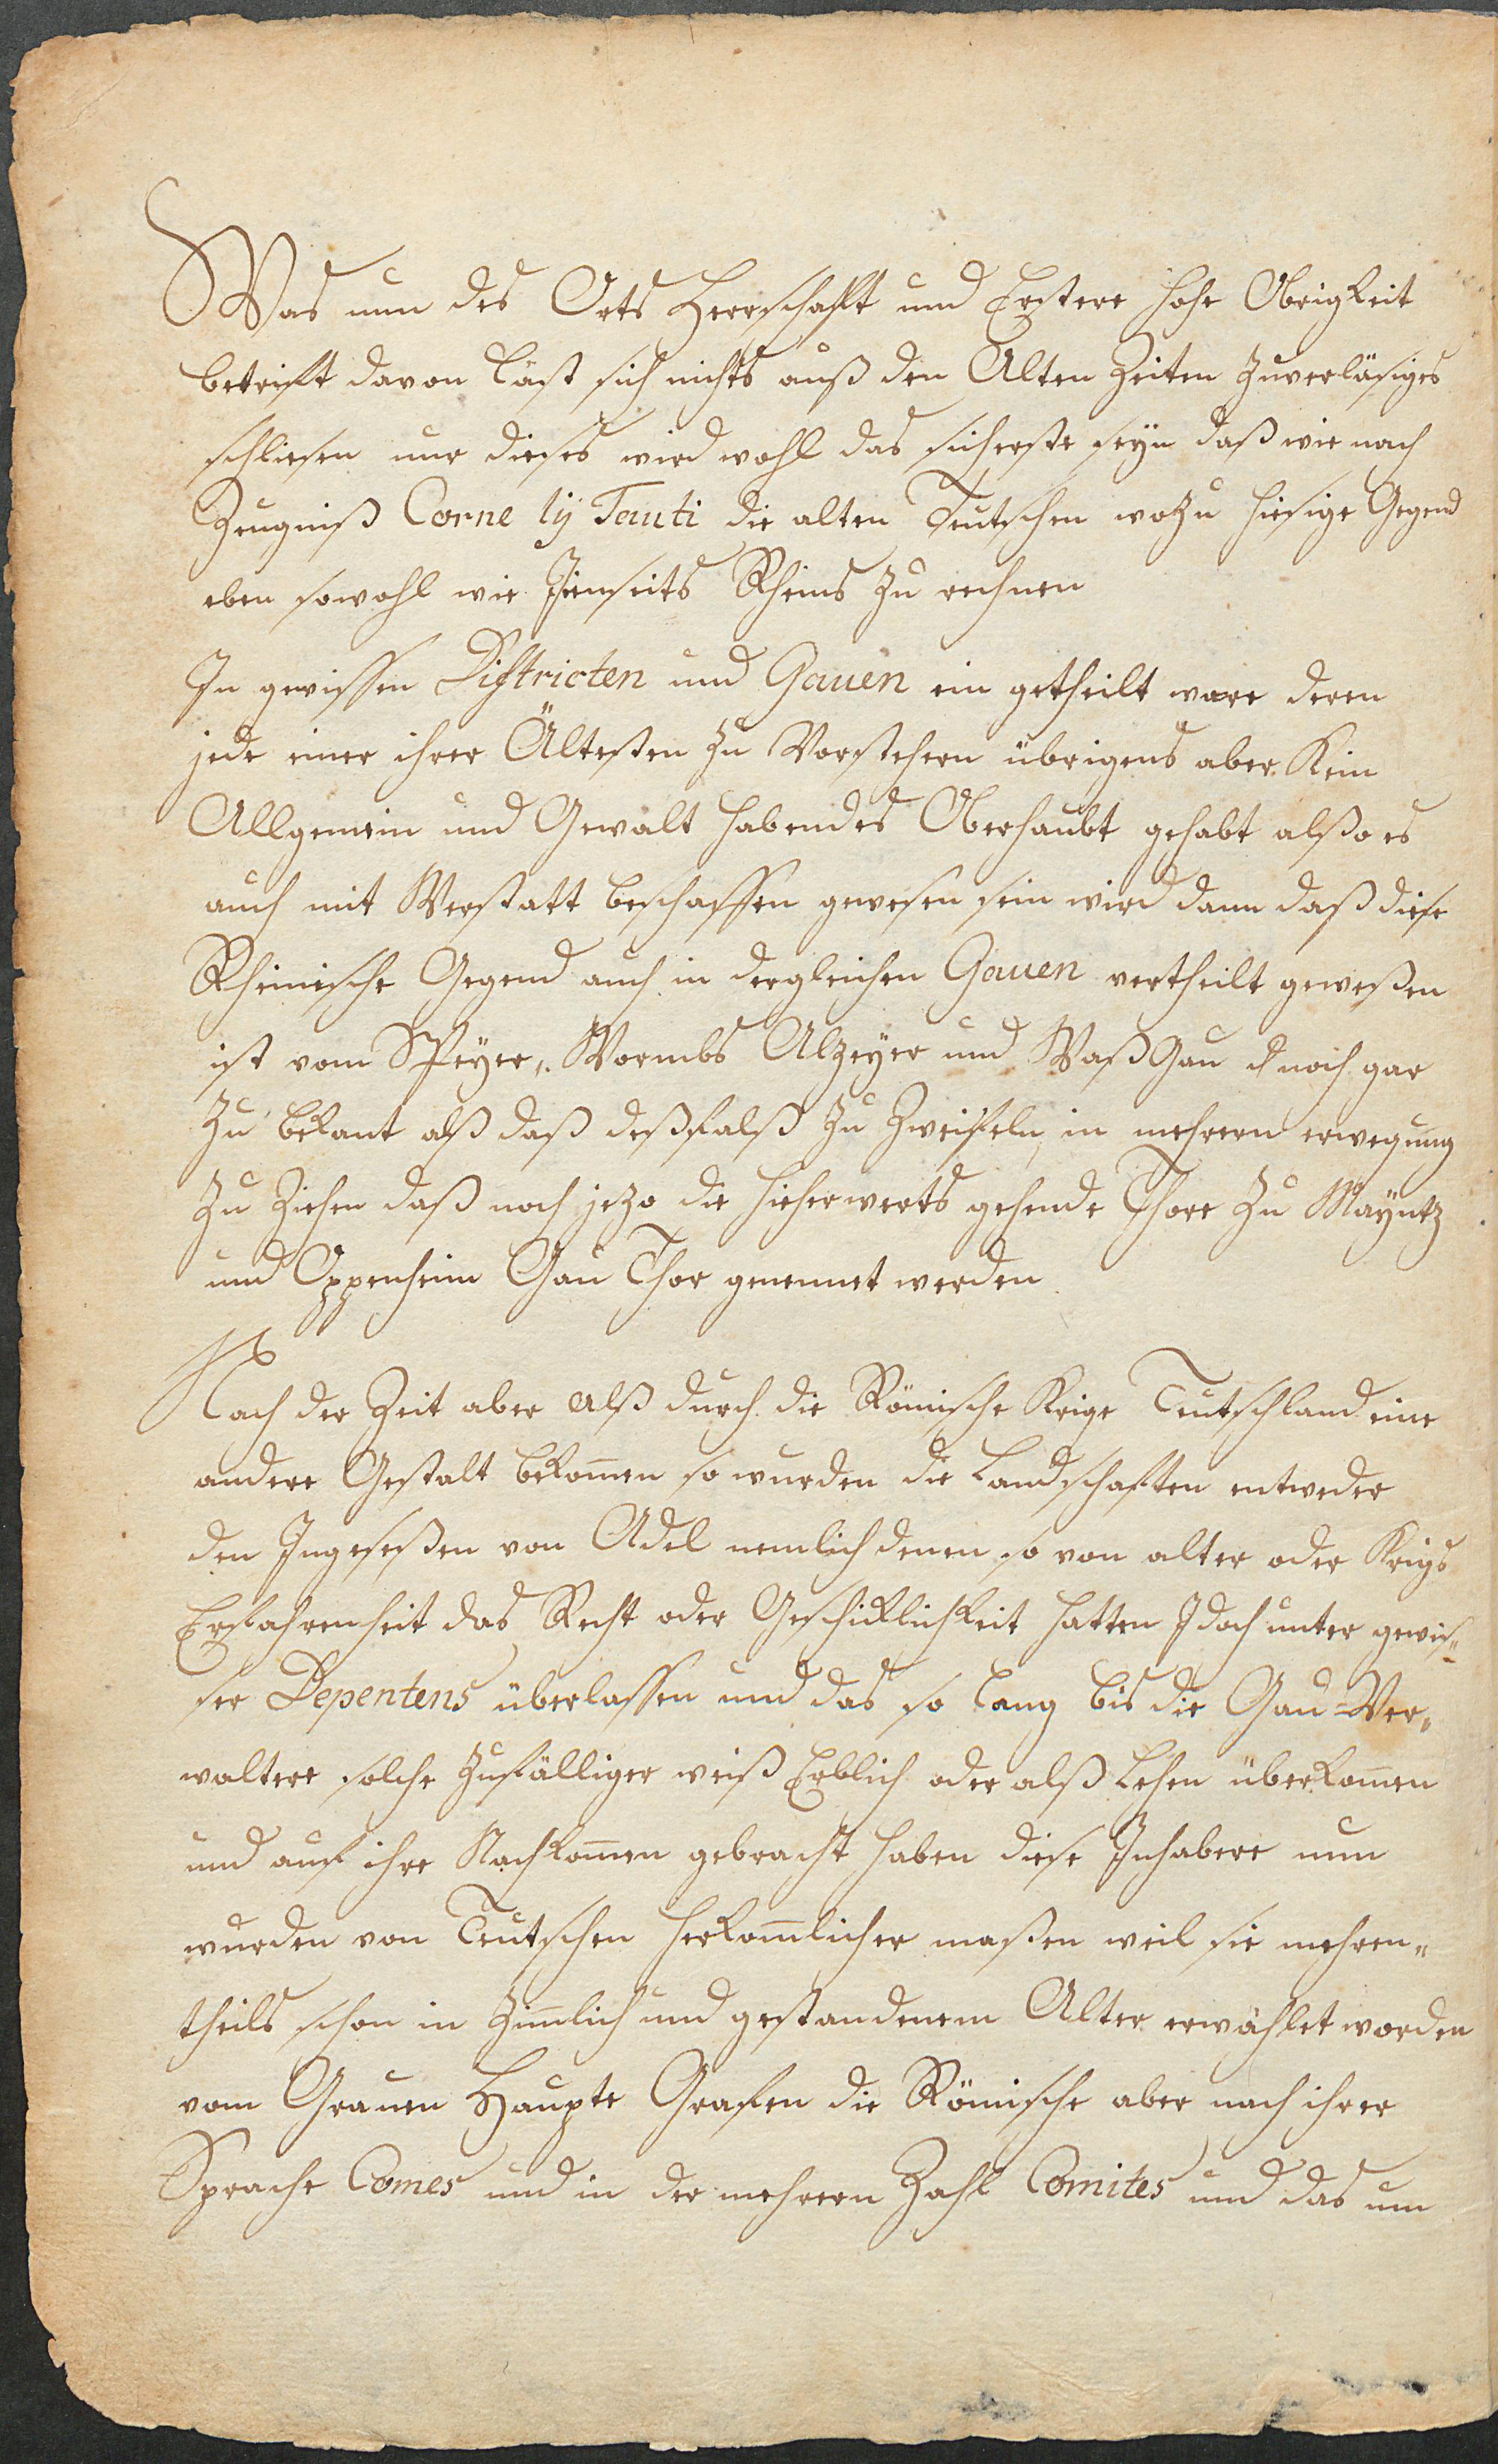 Was nun des Orts Herrschafft und Erstere hohe Obrigkeit
betrifft davon läst sich nichts auß den Alten Zeiten zuverläsiges
schliesen nur dieses wird wohl das sicherste seÿn daß wie nach
Zeugniß Corne lÿ Tauti die alten Teutschen wozu hiesige Gegend
eben sowohl wie Jenseits Rheins zu rechnen
In gewissen Districten und Gauen ein getheilt ware deren
jede einer ihrer Ältesten zu Vorstehern übrigens aber Kein
Allgemein und Gewalt habendes Oberhaubt gehabt alßo es
auch mit Werstatt beschaffen gewesen sein wird dann daß diese
Rheinische Gegend auch in dergleichen Gauen vertheilt geweßen
ist vom Speÿer„ Wormbs Alzeÿer und Waßgau noch gar
zu bekant alß daß deßfalß zu Zweifeln, in mehrern erwegung
zu Ziehen daß noch jezo die hieherwerts gehende Thore zu Maÿntz
und Oppenheim Gau Thor genennet werden
Nach der Zeit aber alß durch die Römische Krige Teutschland eine
andere Gestalt bekom̄en so wurden die Landschafften entweder
den Ingeseßen von Adel nemlich denen so von alter oder Krigs
Erfahrenheit das Recht oder Geschicklichkeit hatten Jdoch unter gewis„
ser Depentens überlassen und das so lang bis die Gau=Ver„
waltere solche zufälliger weiß Erblich oder alß Lehen überkom̄en
und auf ihre Nachkom̄en gebracht haben diese Inhabere nun
wurden von Teutschen herkom̄licher maßen weil sie mehren„
theils schon in zim̄lich und gestandenem Alter erwählet worden
vom Grauen Haupte Grafen die Römische aber nach ihrer
Sprache Comes und in der mehrern Zahl Comites und das um